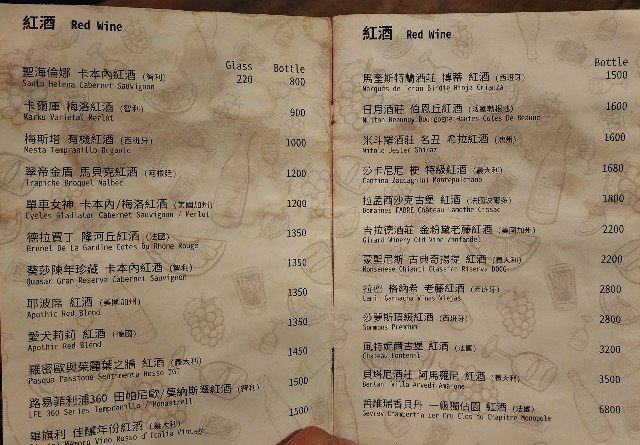 紅酒 Red Wine
Glass Bottle
聖海倫娜 卡本內紅酒 (智利) 220 800
Santa Helena Cabernet Sauvignon
卡爾庫 梅洛紅酒 (智利) 900
Karku Varietal Merlot
梅斯塔 有機紅酒 (西班牙) 1000
Mesta Tempranillo Organic
翠帝金盾 馬貝克紅酒 (阿根廷) 1200
Trapiche Broquel Malbec
單車女神 卡本內/梅洛紅酒 (美國加州) 1200
Cycles Gladiator Cabernet Sauvignon / Merlot
德拉賈丁 隆河丘紅酒 (法國) 1350
Brunel De La Gardine Cotes Du Rhone Rouge
葵莎陳年珍藏 卡本內紅酒 (智利) 1350
Quasar Gran Reserva Cabernet Sauvignon
耶波席 紅酒 (美國加州) 1350
Apothic Red Blend
愛犬莉莉 紅酒 (德國) 1350
Apothic Red Blend
羅密歐與茱麗葉之牆 紅酒 (義大利) 1450
Pasqua Passione Sentimento Rosso IGT
路易菲利浦360 田帕尼歐/莫納斯澤紅酒 (智利) 1500
LFE 360 Series Tempranillo / Monastrell
畢旗利 佳釀年份紅酒 (義大利) 1500
Vino Rosso d'Italia Vintage
紅酒 Red Wine
Bottle
馬奎斯特蘭酒莊 博蒂 紅酒 (西班牙) 1500
Marqués de Terán Birdie Rioja Crianza
日月酒莊 伯恩丘紅酒 (法國勃根地) 1600
Nuiton Beaunoy Bourgogne Hautes Cotes De Beaune
米斗羅酒莊 名丑 希拉紅酒 (澳洲) 1600
Mitolo Jester Shiraz
莎卡尼尼 梗 特級紅酒 (義大利) 1680
Cantina Zaccagnini Montepulciano
拉孟西沙克古堡 紅酒 (法國波爾多) 1800
Domaines FABRE Château Lamothe Cissac
吉拉德酒莊 金粉黛老藤紅酒 (美國加州) 2200
Girard Winery Old Vine Zinfandel
蒙聖尼斯 古典奇揚提 紅酒 (義大利) 2200
Monsenese Chianti Classico Riserva DOCG
拉密 格納希 老藤紅酒 (西班牙) 2800
Garnacha Vinas Viejas
莎夢斯頂級紅酒 (西班牙) 2800
Sommons Premium
風特妮爾古堡 紅酒 (法國) 3200
Chateau Fontenil
貝塔尼酒莊 阿馬羅尼 紅酒 (義大利) 3500
Bertani Villa Arvedi Amarone
哲維瑞香貝丹 一級獨佔園 紅酒 (法國) 6800
Gevrey Chambertin 1er Cru Clos du Chapitre Monopole